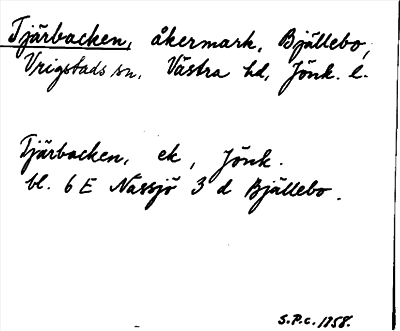 Tjärbacken, åkermark, Bjällebo,
Vrigstads sn, Västra hd, Jönk. l.
Tjärbacken, ek, Jönk.
bl. 6 E Nässjö 3 d Bjällebo.
S.P.C. 1958.